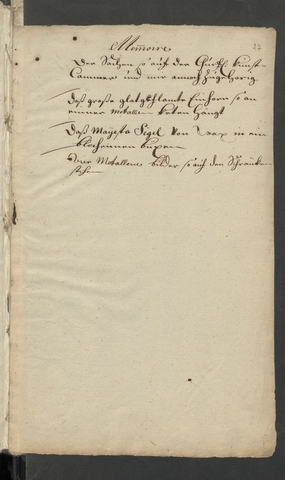 27
Memoire
Der Sachen so auf der Churfl. Kunst
Cammer und mir annoch zugehörig.
Daß große glatgschlamte Einhorn so an
einner Metallen keten hangt
Daß Mayesta Sigel von Wax in ein
blechernen buxen
Metallene bilder so auf den Schrancken
stehen